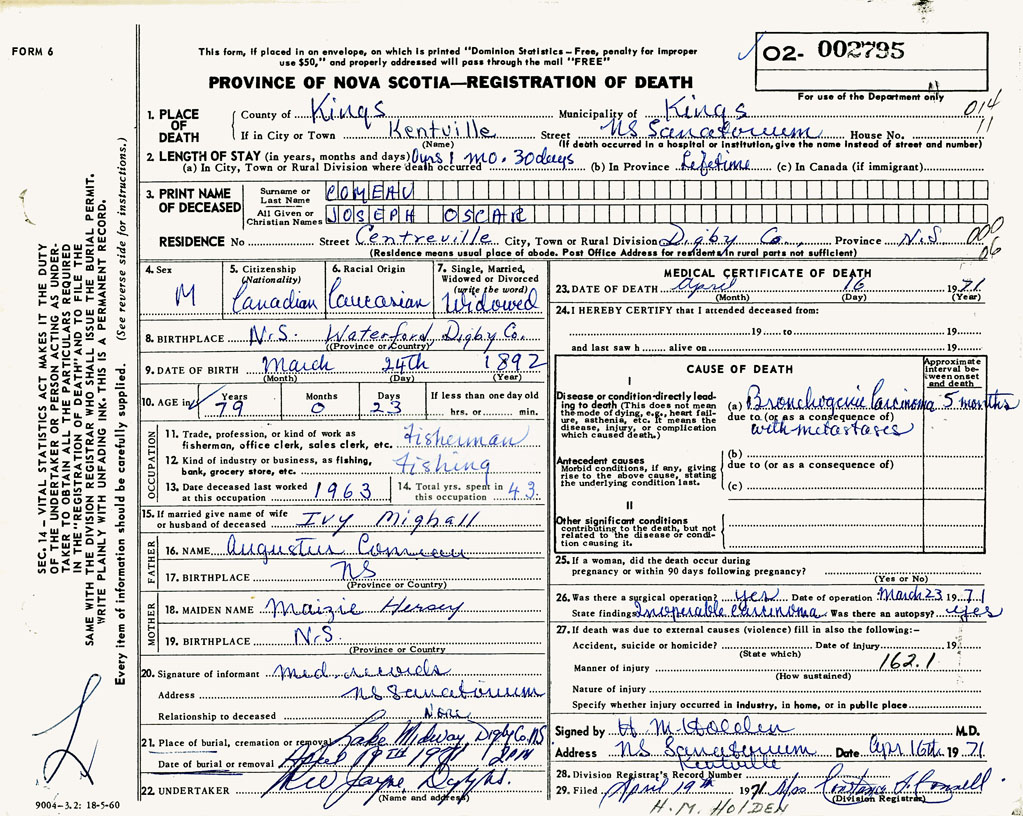 FORM 6
This form, if placed in an envelope, on which is printed "Dominion Statistics – Free, penalty for improper
use $50," and properly addressed will pass through the mail "FREE"
O2- 002795
For use of the Department only
PROVINCE OF NOVA SCOTIA—REGISTRATION OF DEATH
014
11
1. PLACE OF DEATH
County of Kings Municipality of Kings
If in City or Town Kentville Street NS Sanatorium House No.
(Name) (If death occurred in a hospital or institution, give the name instead of street and number)
2. LENGTH OF STAY (in years, months and days) 0 yrs 1 mo. 30 days
(a) In City, Town or Rural Division where death occurred (b) In Province Lifetime (c) In Canada (if immigrant)
3. PRINT NAME OF DECEASED
Surname or Last Name COMEAU
All Given or Christian Names JOSEPH OSCAR
000
06
RESIDENCE No Street Centreville City, Town or Rural Division Digby Co., Province N.S
(Residence means usual place of abode. Post Office Address for residents in rural parts not sufficient)
4. Sex M
5. Citizenship (Nationality) Canadian
6. Racial Origin Caucasian
7. Single, Married, Widowed or Divorced (write the word) Widowed
8. BIRTHPLACE N.S. Waterford, Digby Co.
(Province or Country)
9. DATE OF BIRTH March 24th 1892
(Month) (Day) (Year)
10. AGE in Years 79 Months 0 Days 23 If less than one day old
hrs. or min.
OCCUPATION
11. Trade, profession, or kind of work as
fisherman, office clerk, sales clerk, etc. Fisherman
12. Kind of industry or business, as fishing,
bank, grocery store, etc. Fishing
13. Date deceased last worked
at this occupation 1963
14. Total yrs. spent in
this occupation 43
15. If married give name of wife
or husband of deceased Ivy Mighall
FATHER
16. NAME Augustus Comeau
17. BIRTHPLACE NS
(Province or Country)
MOTHER
18. MAIDEN NAME Maizie Hersey
19. BIRTHPLACE N.S.
(Province or Country
20. Signature of informant Med. records
Address NS Sanatorium
Relationship to deceased None
21. Place of burial, cremation or removal Lake Midway, Digby Co. NS
Date of burial or removal April 19TH 1971 2 PM
22. UNDERTAKER Jayne
(Name and address)
MEDICAL CERTIFICATE OF DEATH
23. DATE OF DEATH April 16 1971
(Month) (Day) (Year)
24. I HEREBY CERTIFY that I attended deceased from:
19 to 19
and last saw h alive on 19
CAUSE OF DEATH
Approximate interval between onset and death
I
Disease or condition directly leading to death (This does not mean the mode of dying, e.g., heart failure, asthenia, etc. It means the disease, injury, or complication which caused death.)
(a) Bronchogenic Carcinoma 5 months
due to (or as a consequence of)
with metastases
Antecedent causes
Morbid conditions, if any, giving rise to the above cause, stating the underlying condition last.
(b)
due to (or as a consequence of)
(c)
II
Other significant conditions
contributing to the death, but not related to the disease or condition causing it.
25. If a woman, did the death occur during
pregnancy or within 90 days following pregnancy?
(Yes or No)
26. Was there a surgical operation? yes Date of operation March 23 1971
State findings Inoperable carcinoma Was there an autopsy? yes
27. If death was due to external causes (violence) fill in also the following:–
Accident, suicide or homicide? Date of injury 19
(State which)
162.1
Manner of injury
(How sustained)
Nature of injury
Specify whether injury occurred in industry, in home, or in public place
Signed by H. M. Holden M.D.
Address NS Sanatorium Date Apr. 16th 1971
Kentville
28. Division Registrar's Record Number
29. Filed April 19th 1971 Mrs. Constance
(Division Registrar)
H. M. HOLDEN
SEC. 14 – VITAL STATISTICS ACT MAKES IT THE DUTY
OF THE UNDERTAKER OR PERSON ACTING AS UNDER-
TAKER TO OBTAIN ALL THE PARTICULARS REQUIRED
IN THE "REGISTRATION OF DEATH" AND TO FILE THE
SAME WITH THE DIVISION REGISTRAR WHO SHALL ISSUE THE BURIAL PERMIT.
WRITE PLAINLY WITH UNFADING INK. THIS IS A PERMANENT RECORD.
Every item of information should be carefully supplied. (See reverse side for instructions.)
9004–3.2: 18-5-60